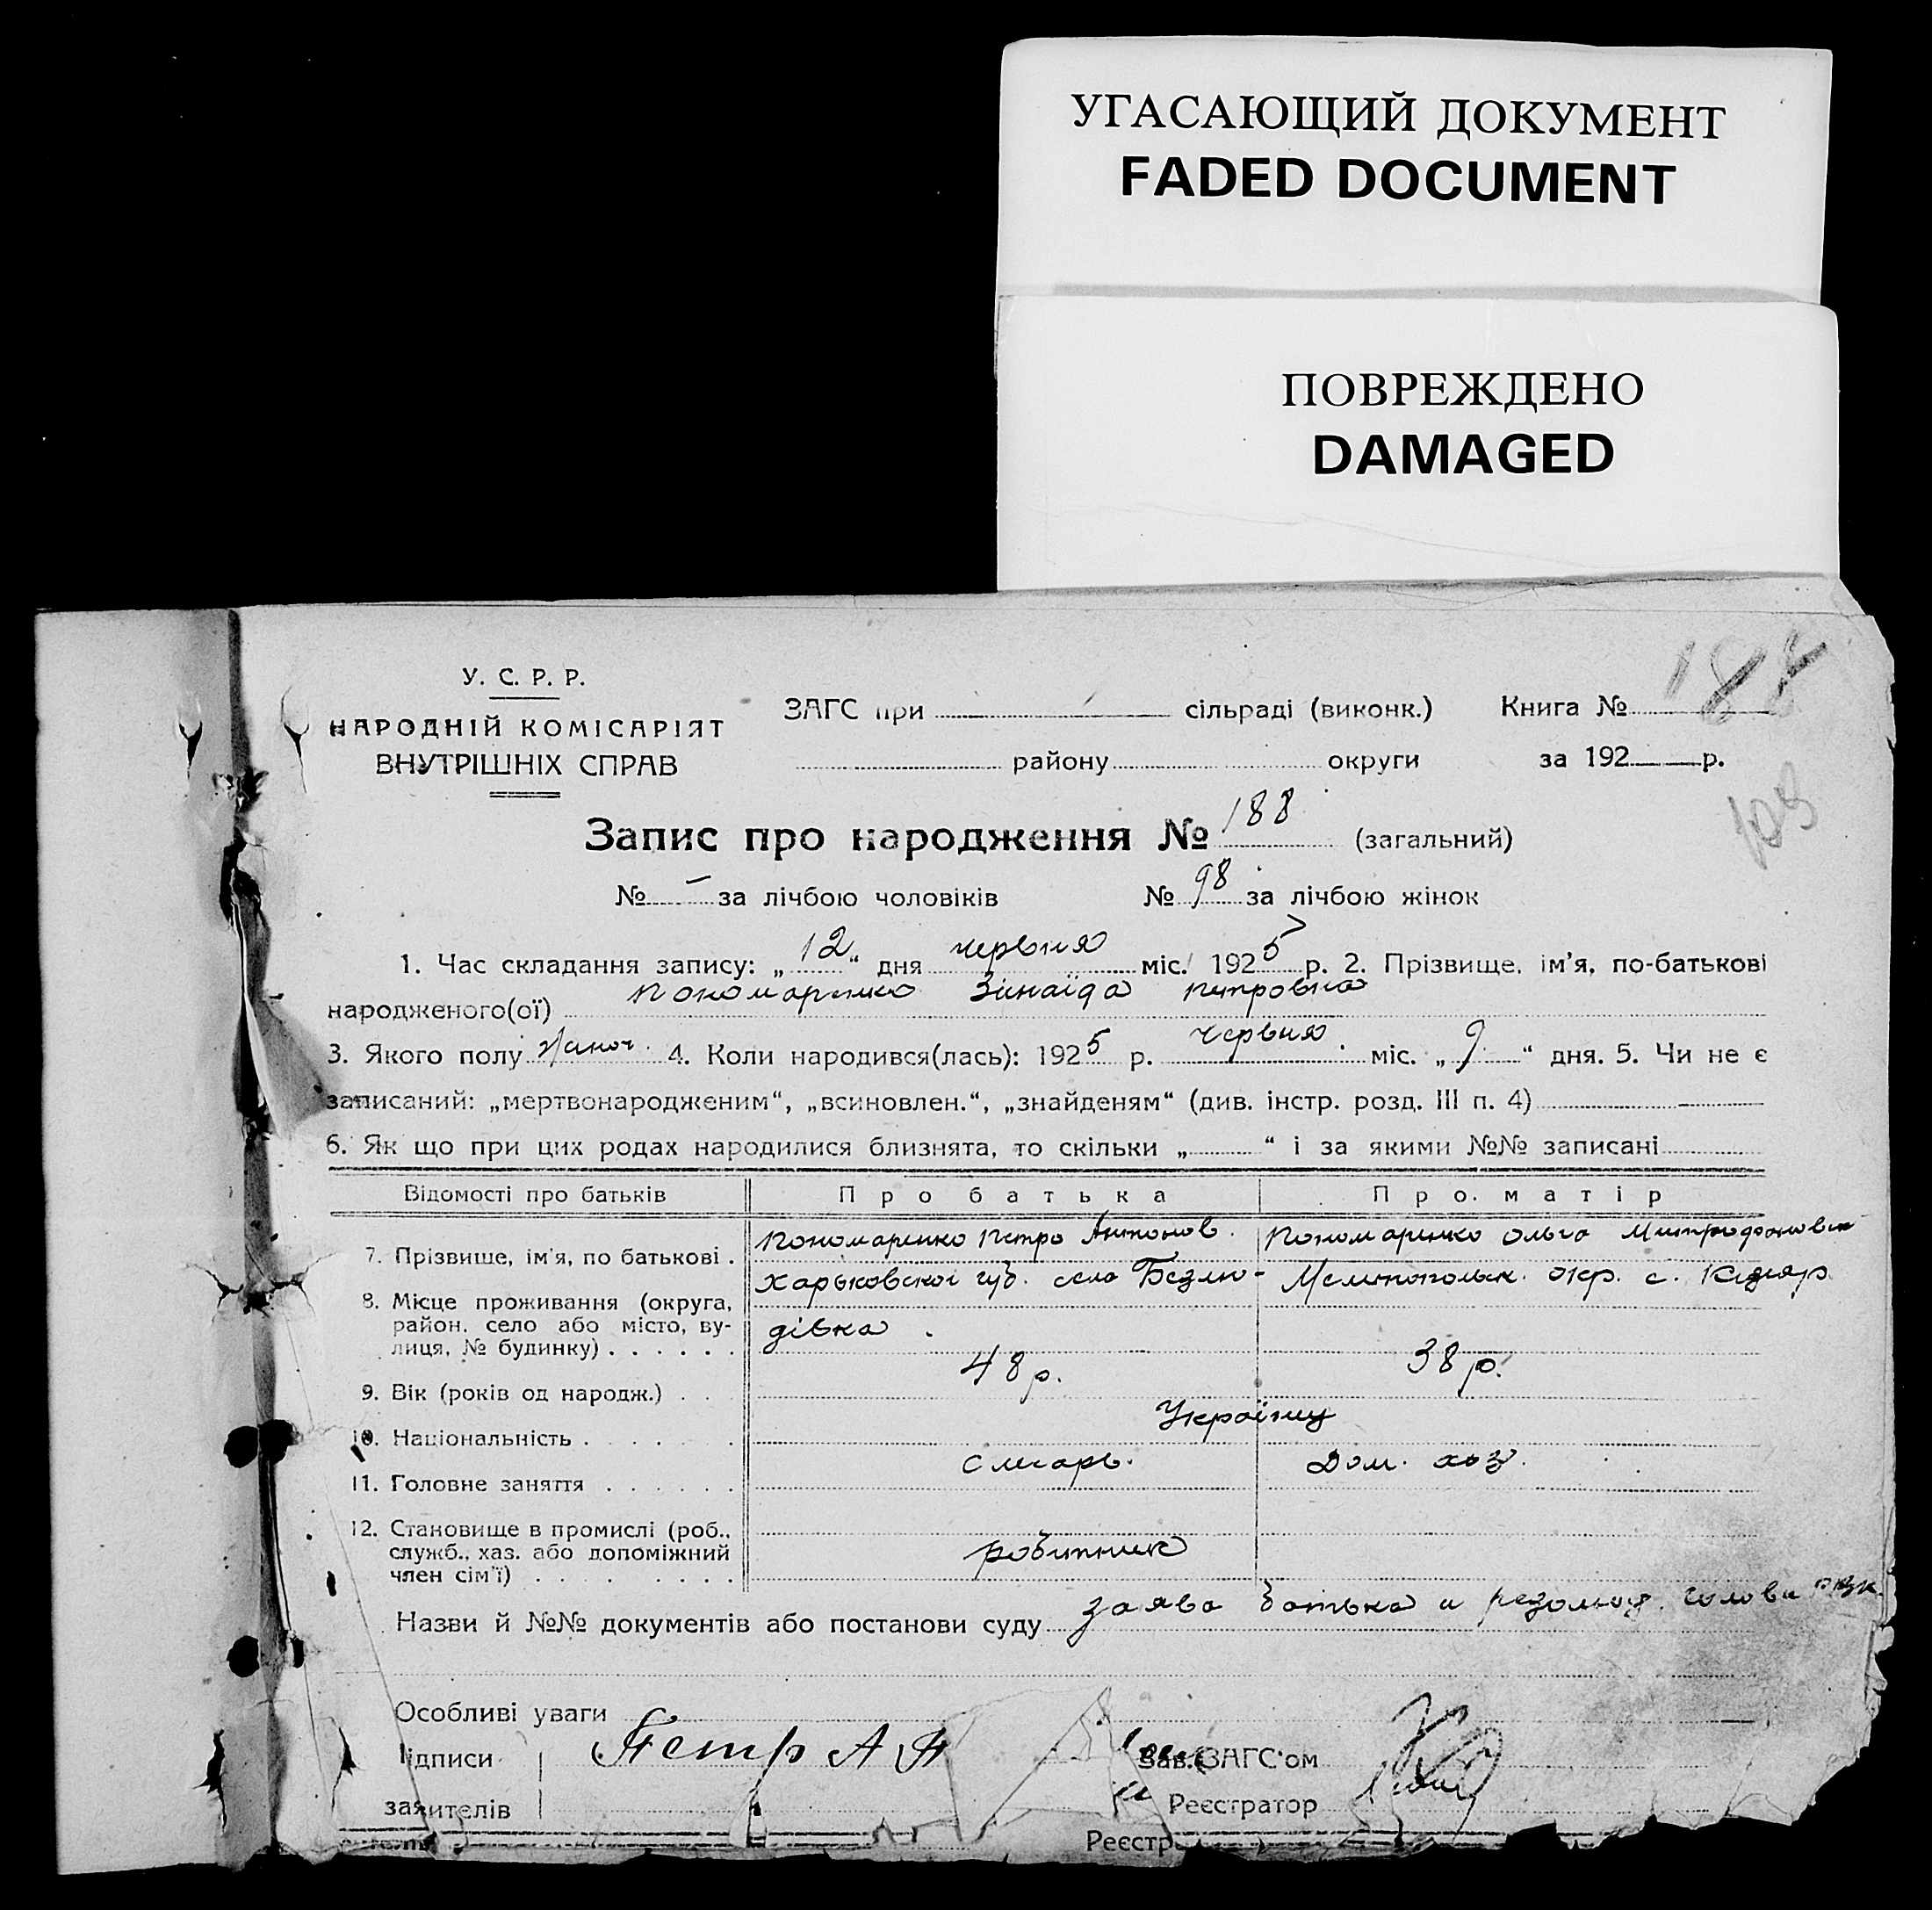 УГАСАЮЩИЙ ДОКУМЕНТ
FADED DOCUMENT
ПОВРЕЖДЕНО
DAMAGED
188
У. С. Р. Р.
НАРОДНІЙ КОМІСАРІЯТ
ВНУТРІШНІХ СПРАВ
ЗАГС при сільраді (виконк.) Книга №
району округи за 192 р.
Запис про народження № 188 (загальний)
№ – за лічбою чоловіків № 98 за лічбою жінок
1. Час складання запису: „12“ дня червня міс. 1925 р. 2. Прізвище, ім'я, по-батькові
народженого(ої) Пономаренко Зінаїда Петровна
3. Якого полу жіноч. 4. Коли народився(лась): 1925 р. червня міс. „9“ дня. 5. Чи не є
записаний: „мертвонародженим“, „всиновлен.“, „знайденям“ (див. інстр. розд. III п. 4)
6. Як що при цих родах народилися близнята, то скільки „ “ і за якими №№ записані
Відомості про батьків Про батька Про матір
7. Прізвище, ім'я, по батькові . Пономаренко Петро Антонов. Пономаренко Ольга Митрофановна
8. Місце проживання (округа, район, село або місто, вулиця, № будинку) . . . . . . Харьковскої губ. село Безлю- Мелитопольск. окр. с.
дівка.
9. Вік (років од народж.) . . . 48 р. 38 р.
10. Національність . . . . . . Українці
11. Головне заняття . . . . . . слюсарь. Дом. хоз.
12. Становище в промислі (роб., служб., хаз. або допоміжний член сім'ї) . . . . . . . . робитник
Назви й №№ документів або постанови суду заява батька и резолюц. голови
Особливі уваги
Підписи Петр А П Зав. ЗАГС'ом
заявителів Реєстратор
Реєстр